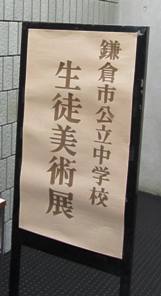 鎌倉市公立中学校
生徒美術展